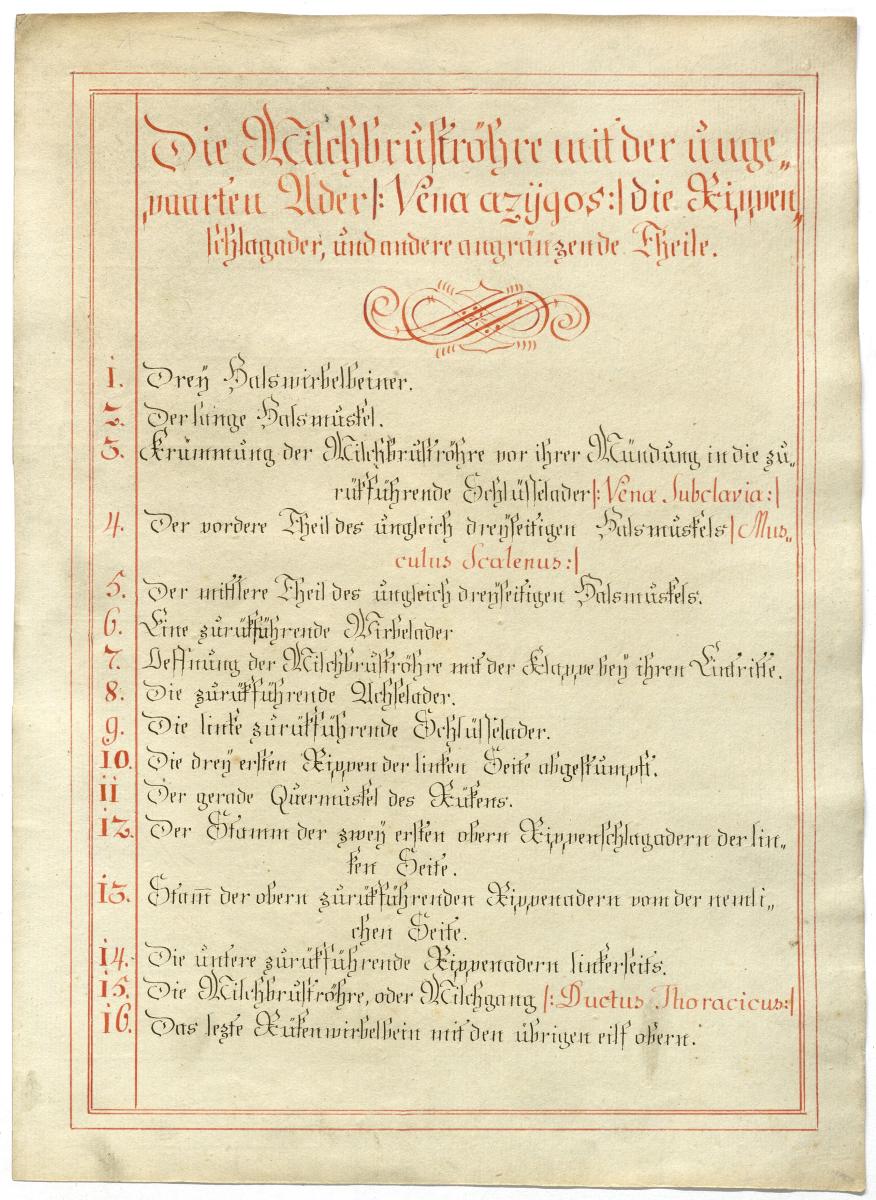 Die Milchbruströhre mit der unge„
„paarten Ader |: Vena azÿgos :| die Rippen„
schlagader, und andere angränzende Theile.
1. Dreÿ Halswirbelbeiner.
2. Der lange Halsmuskel.
3. Krümmung der Milchbruströhre vor ihrer Mündung in die zu„
rükführende Schlüsselader |: Venæ Subclavia :|
4. Der vordere Theil des ungleich dreÿseitigen Halsmuskels | Mus„
culus Scalenus :|
5. Der mittlere Theil des ungleich dreÿseitigen Halsmuskels.
6. Eine zurükführende Wirbelader
7. Oeffnung der Milchbruströhre mit der Klappe beÿ ihren Eintritte.
8. Die zurükführende Achselader.
9. Die linke zurükführende Schlüsselader.
10. Die dreÿ ersten Rippen der linken Seite abgestumpft.
11 Der gerade Quermuskel des Rükens.
12. Der Stamm der zweÿ ersten obern Rippenschlagadern der lin„
ken Seite.
13. Stam̅ der obern zurükführenden Rippenadern vom der nemli„
chen Seite.
14. Die untere zurükführende Rippenadern linkerseits.
15. Die Milchbruströhre, oder Milchgang |: Ductus Thoracicus :|
16. Das lezte Rükenwirbelbein mit den übrigen eilf obern.